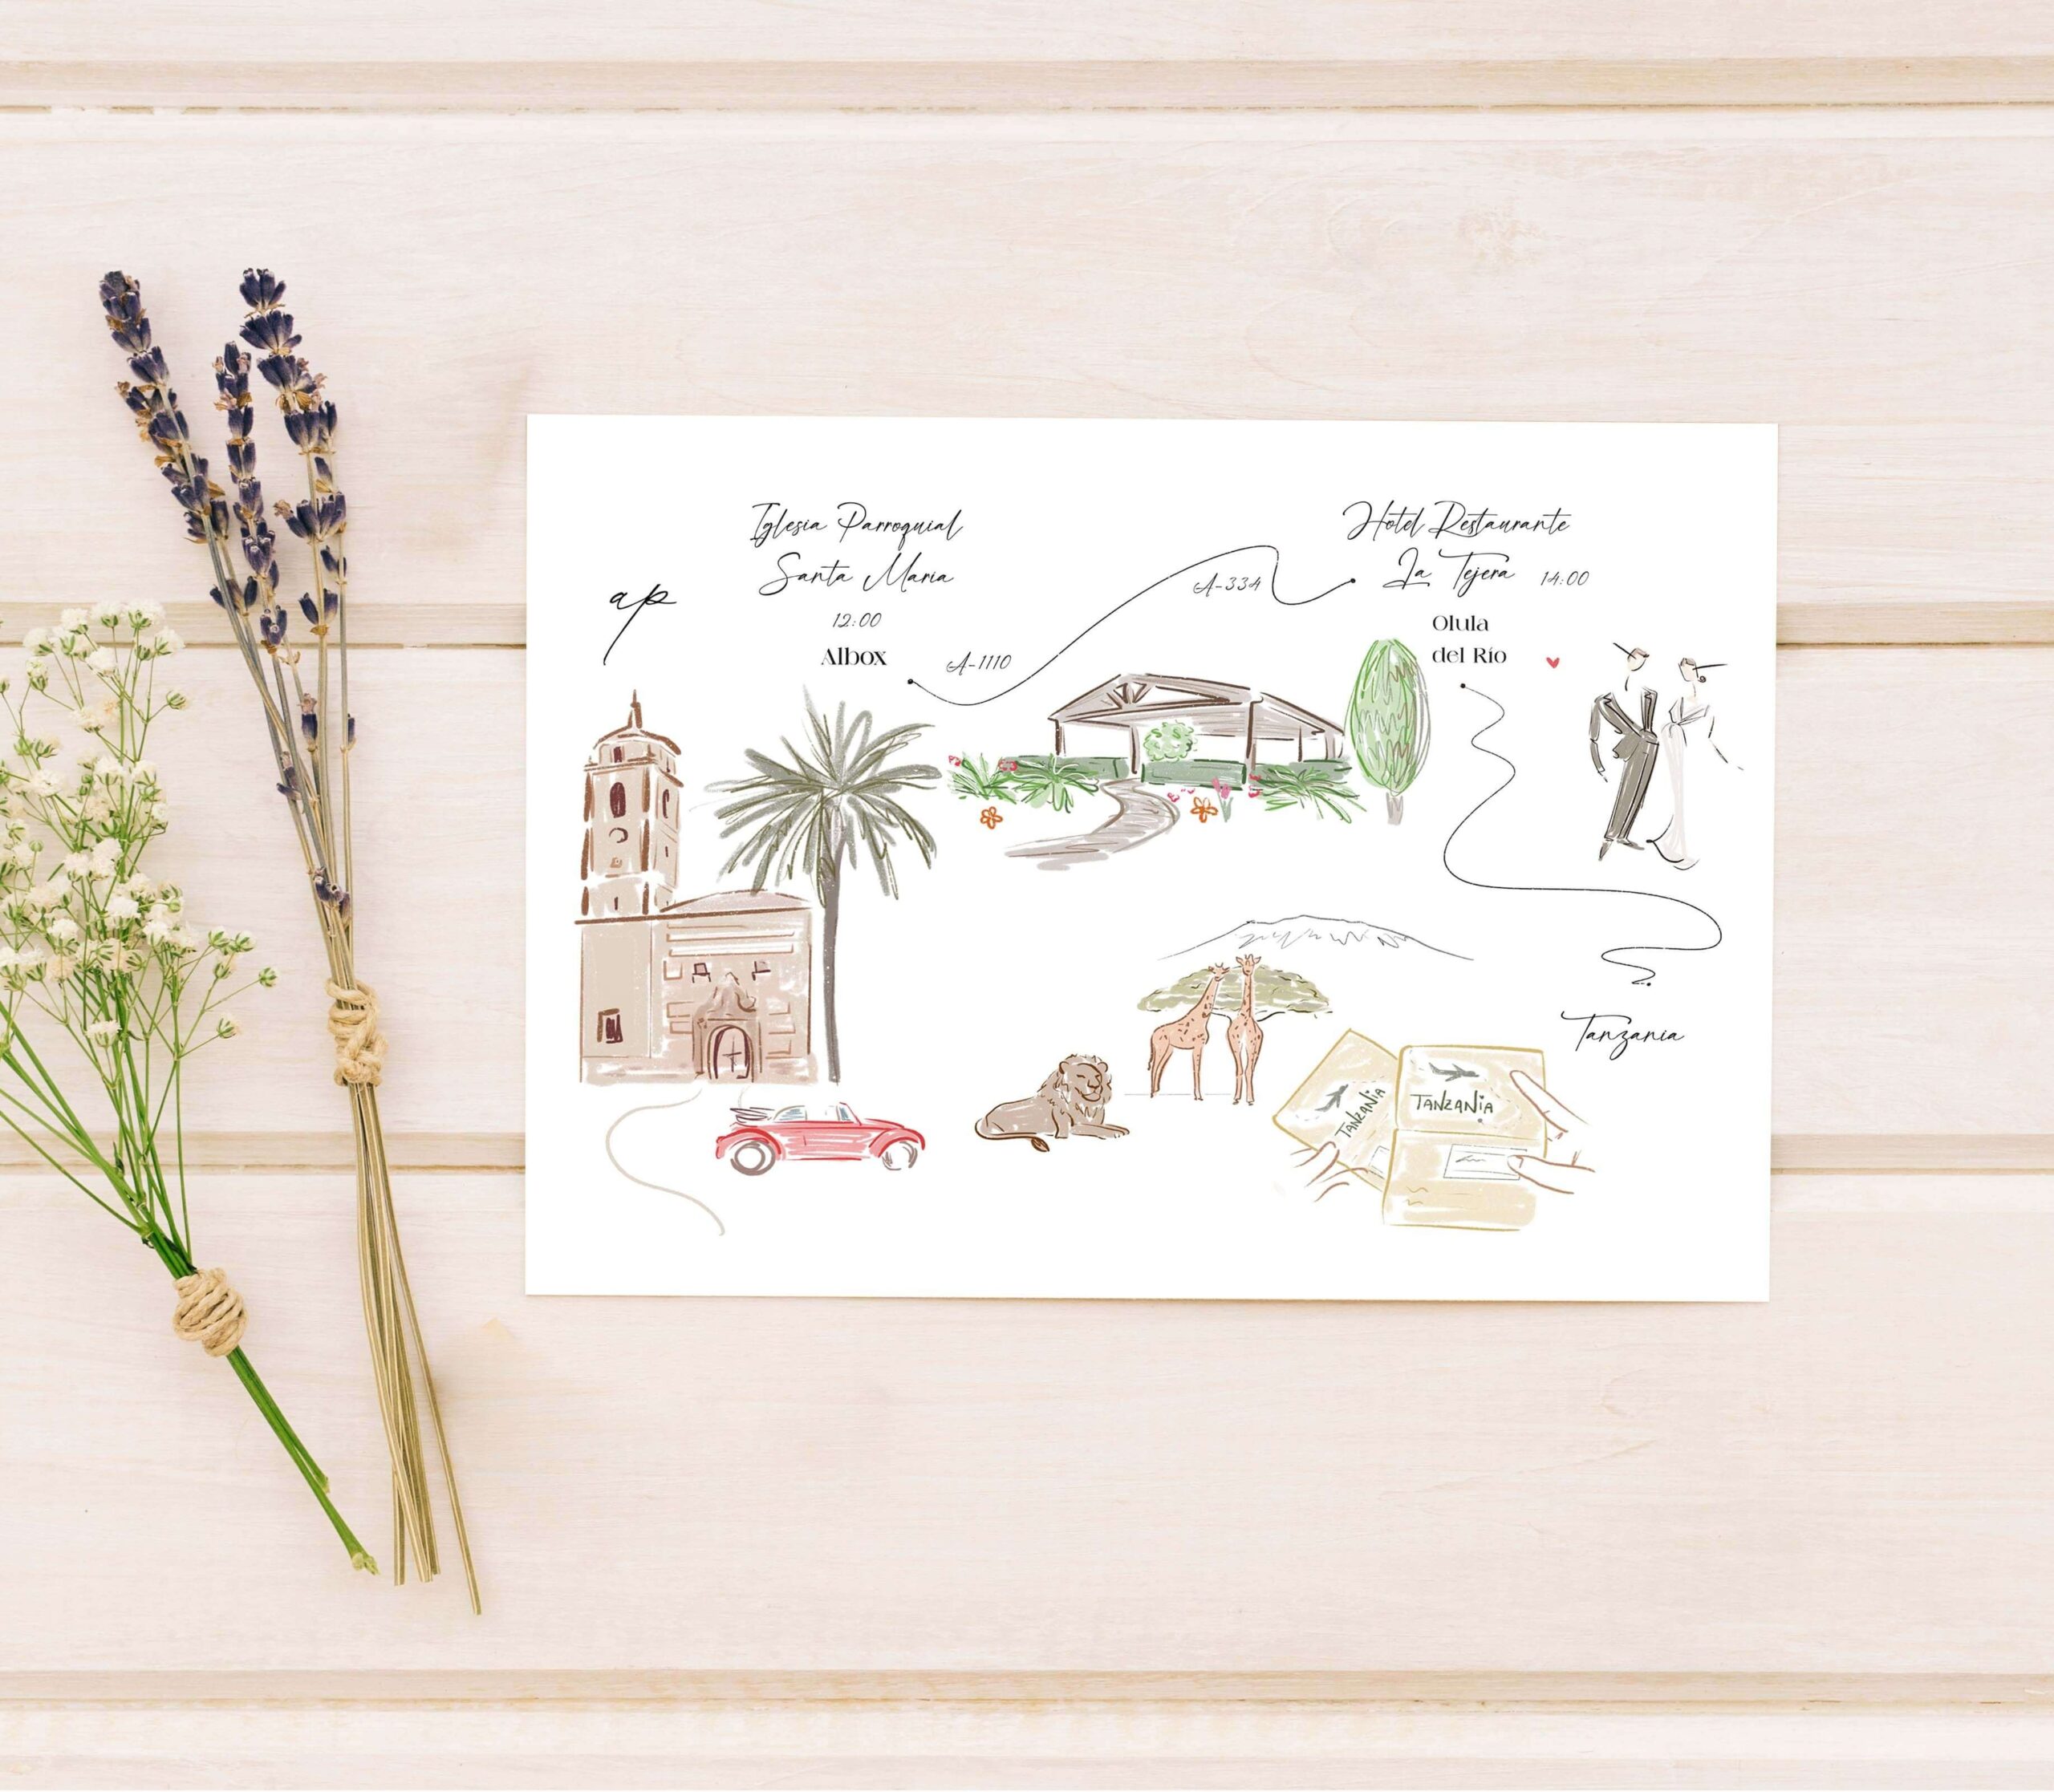 ap
Iglesia Parroquial
Santa Maria
12:00
Albox
A-1110
A-334
Hotel Restaurante
La Tejera 14:00
Olula
del Río
Tanzania
TANZANiA
TANZANiA